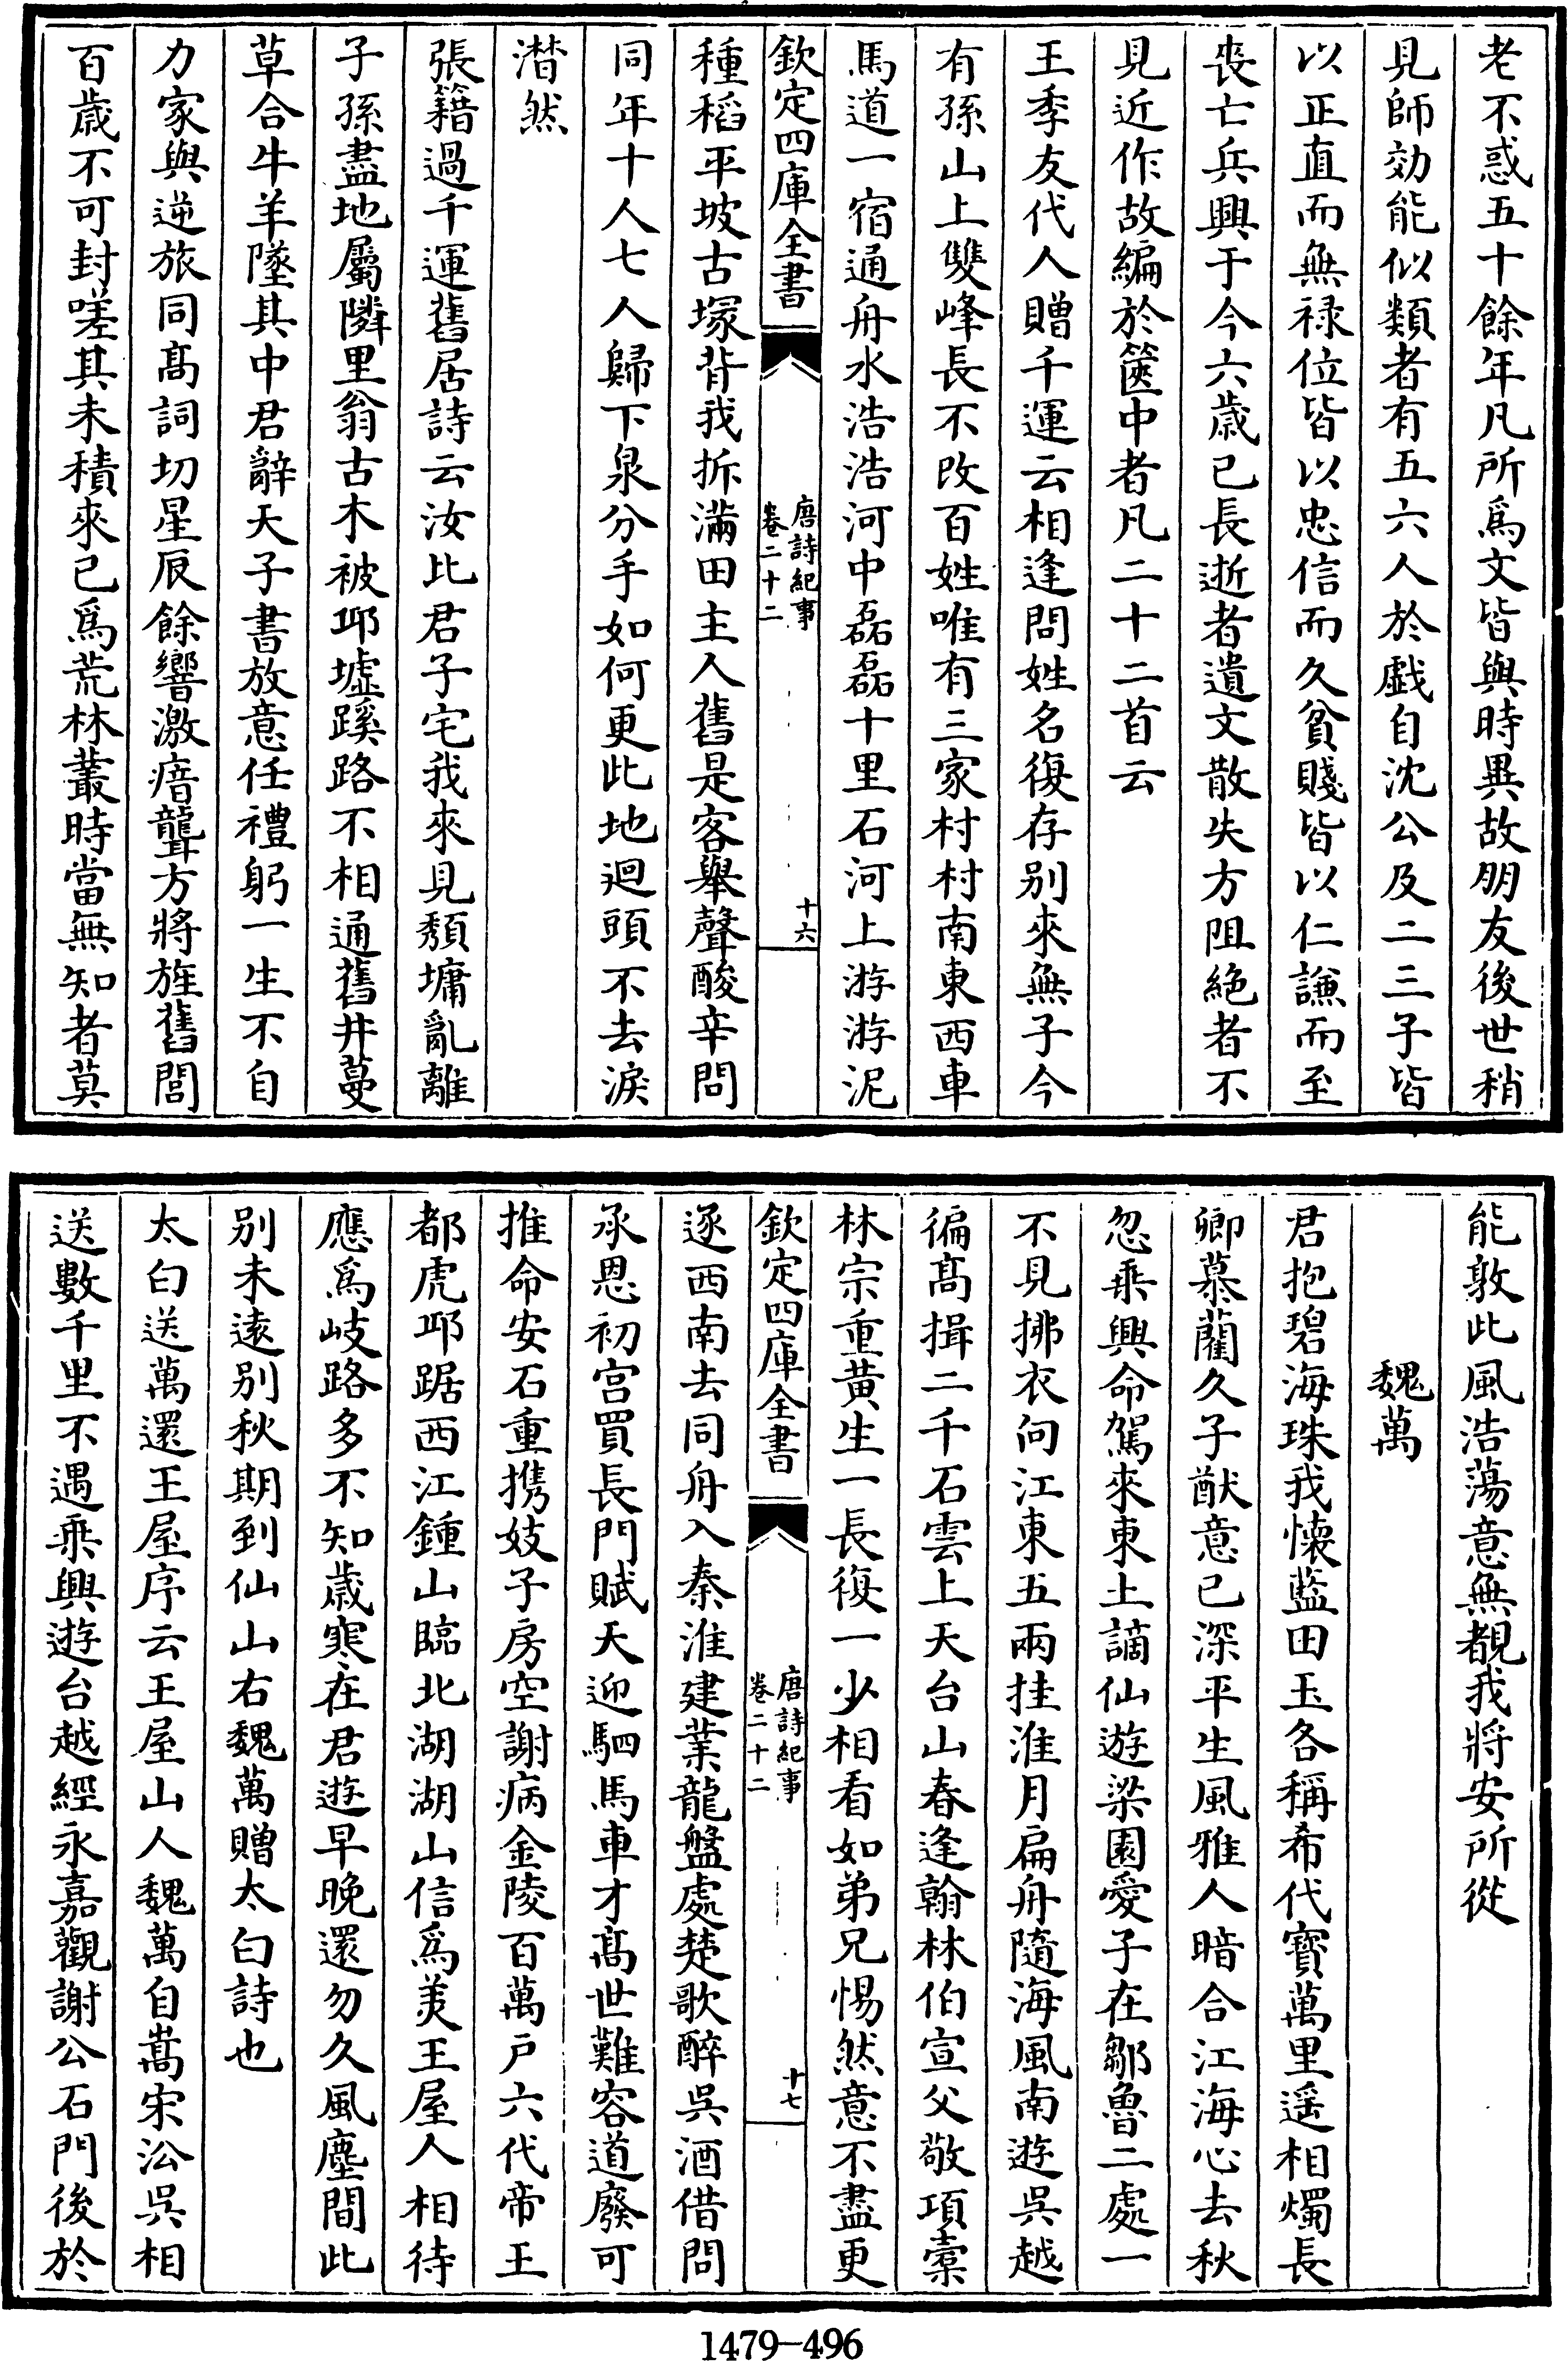 老不惑五十餘年凡所爲文皆與時異故朋友後世稍
見師効能似類者有五六人於戲自沈公及二三子皆
以正直而無禄位皆以忠信而久貧賤皆以仁讓而至
喪亡兵興于今六歳已長逝者遺文散失方阻絶者不
見近作故編於篋中者凡二十二首云
王季友代人贈千運云相逢問姓名復存别來無子今
有孫山上雙峰長不改百姓唯有三家村村南東西車
馬道一宿通舟水浩浩河中磊磊十里石河上游游泥
欽定四庫全書
唐詩紀事
卷二十二
十六
種稻平坡古塚背我拆滿田主人舊是客舉聲酸辛問
同年十人七人歸下泉分手如何更此地迴頭不去淚
潸然
張籍過千運舊居詩云汝比君子宅我來見頽墉亂離
子孫盡地屬隣里翁古木被邱墟蹊路不相通舊井蔓
草合牛羊墜其中君辭天子書放意任禮躬一生不自
力家與逆旅同髙詞切星辰餘響激瘖聾方將旌舊閭
百歳不可封嗟其未積來已爲荒林叢時當無知者莫
能敦此風浩蕩意無覩我將安所從
魏萬
君抱碧海珠我懐藍田玉各稱希代寳萬里遥相燭長
卿慕藺久子猷意已深平生風雅人暗合江海心去秋
忽乗興命駕來東土謫仙遊梁園愛子在鄒魯二處一
不見拂衣向江東五兩挂淮月扁舟隨海風南遊吳越
徧髙揖二千石雲上天台山春逢翰林伯宣父敬項槖
林宗重黄生一長復一少相看如弟兄惕然意不盡更
欽定四庫全書
唐詩紀事
卷二十二
十七
逐西南去同舟入秦淮建業龍盤處楚歌醉吳酒借問
承恩初宫買長門賦天迎駟馬車才髙世難容道廢可
推命安石重携妓子房空謝病金陵百萬户六代帝王
都虎邱踞西江鍾山臨北湖湖山信爲美王屋人相待
應爲岐路多不知歳寒在君遊早晚還勿久風塵間此
别未遠别秋期到仙山右魏萬贈太白詩也
太白送萬還王屋序云王屋山人魏萬自嵩宋沿吳相
送數千里不遇乗興遊台越經永嘉觀謝公石門後於
1479—496